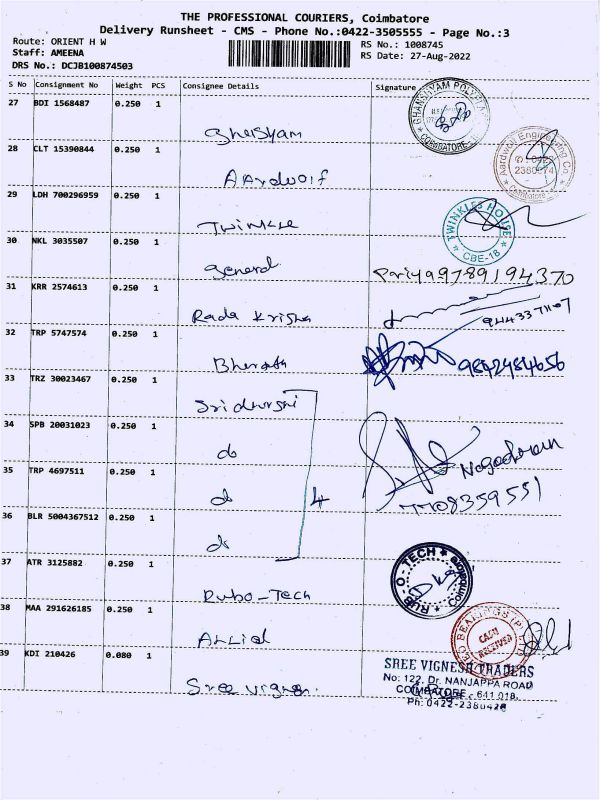 THE PROFESSIONAL COURIERS, Coimbatore
Delivery Runsheet - CMS - Phone No.:0422-3505555 - Page No.:3
Route: ORIENT H W
RS No.: 1008745
Staff: AMEENA
RS Date: 27-Aug-2022
DRS No.: DCJB100874503
S No Consignment No Weight PCS Consignee Details Signature
27 BDI 1568487 0.250 1
COIMBATORE
28 CLT 15390844 0.250 1
Aardwolf
Aardwolf Engineering Co
Coimbatore
29 LDH 700296959 0.250 1
Twinkle
TWINKLES HOUSE
CBE-18
30 NKL 3035507 0.250 1
General
Pariya9789194370
31 KRR 2574613 0.250 1
Rada Krisha
32 TRP 5747574 0.250 1
Bharath
9842484656
33 TRZ 30023467 0.250 1
34 SPB 20031023 0.250 1
do
35 TRP 4697511 0.250 1
do
4
7708359551
36 BLR 5004367512 0.250 1
do
37 ATR 3125882 0.250 1
Rubo-Tech
RUB-O-TECH
38 MAA 291626185 0.250 1
Allied
CASH
RECEIVED
39 KDI 210426 0.080 1
Sree vignesh
SREE VIGNESH TRADERS
No: 122, Dr. NANJAPPA ROAD
COIMBATORE - 641 018.
Ph: 0422-2380428